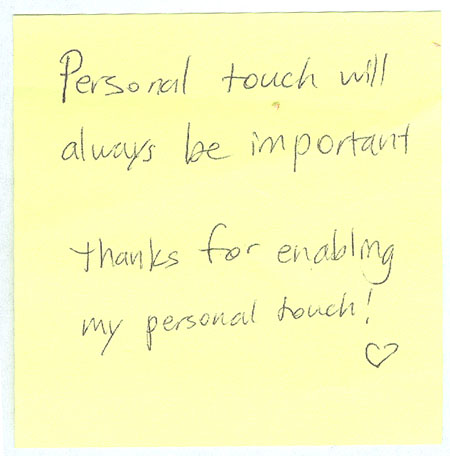 Personal touch will
always be important
thanks for enabling
my personal touch!
♡